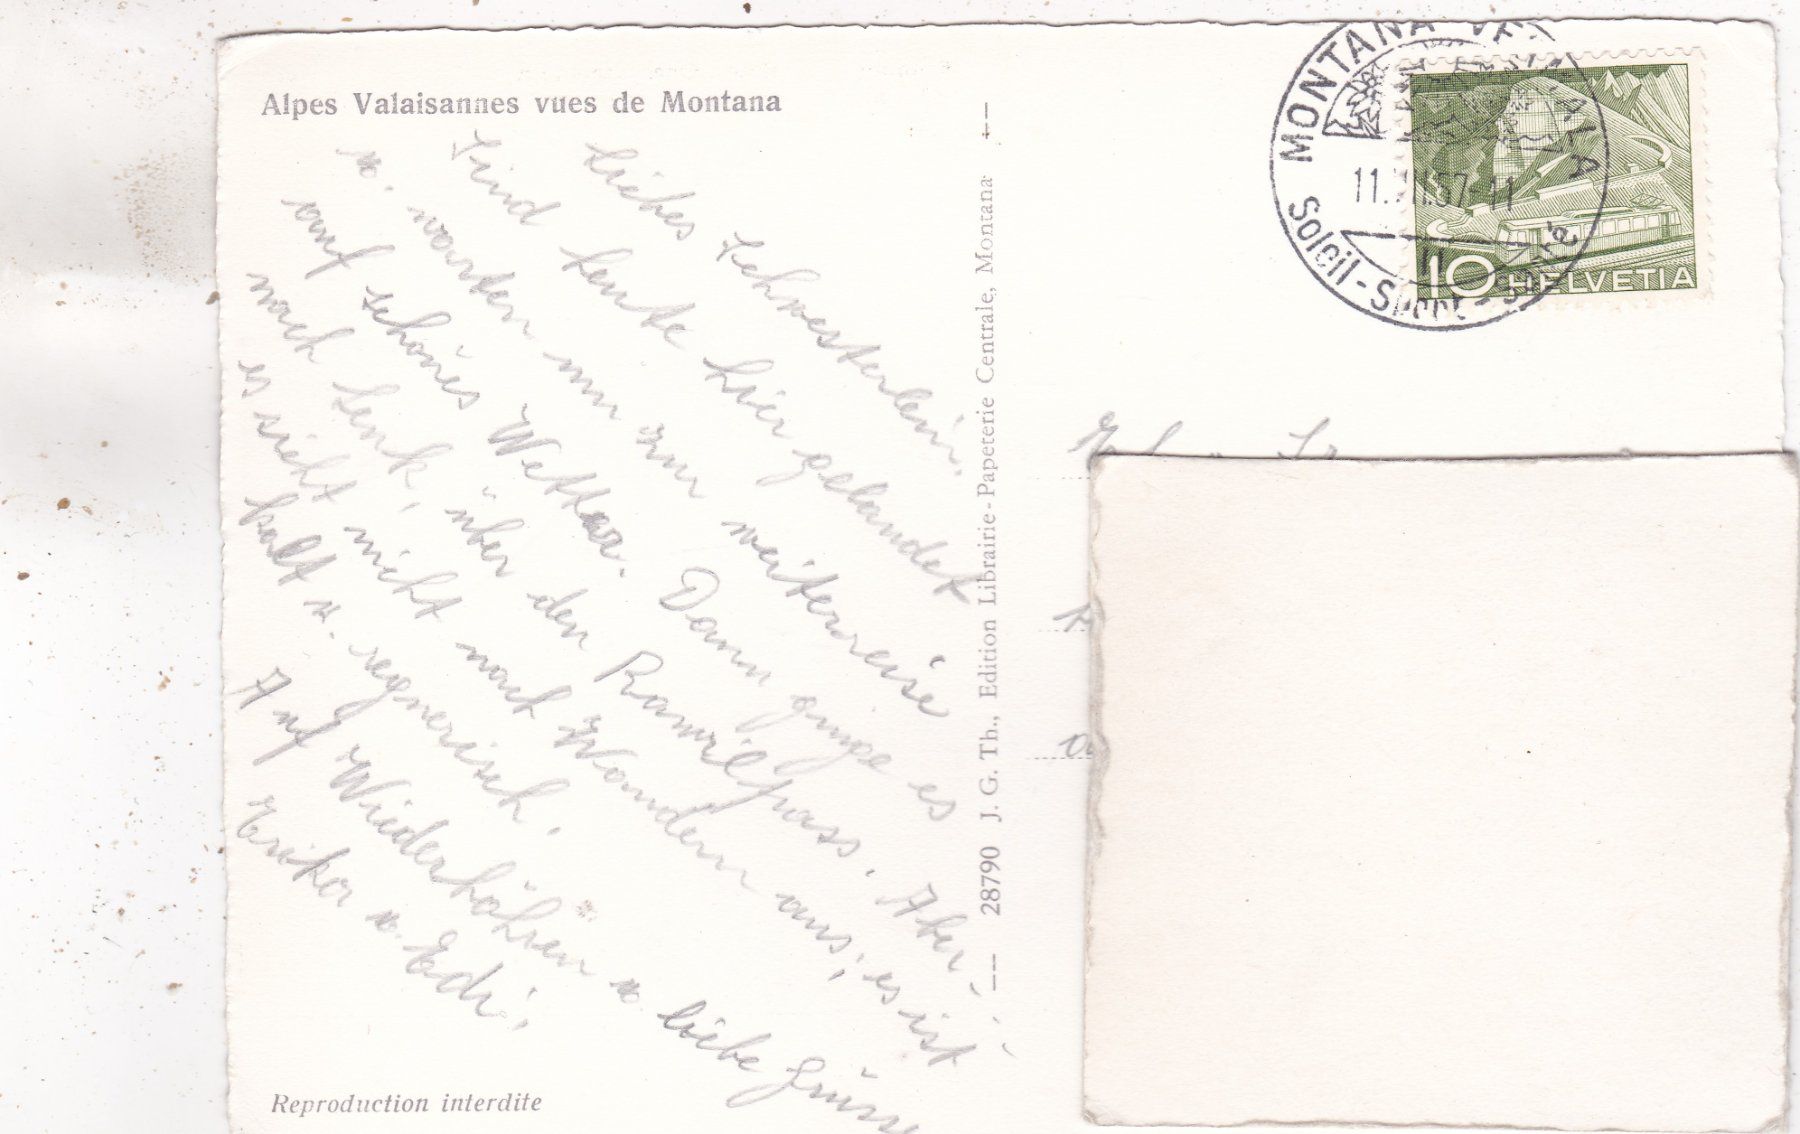 Alpes Valaisannes vues de Montana
Liebes Schwesterlein,
Sind heute hier gelandet
u. warten nun zur weiterreise
auf schönes Wetter. Dann ginge es
nach Lenk, über den Rawilpass. Aber,
es sieht nicht nach Wandern aus; es ist
kalt u. regnerisch.
Auf Wiederhöhren u. liebe Grüsse
Erika u. Edi.
Reproduction interdite
28790 J. G. Th., Edition Librairie-Papeterie Centrale, Montana
MONTANA VERMALA
11. 57-11
Soleil - Sport -
10 HELVETIA